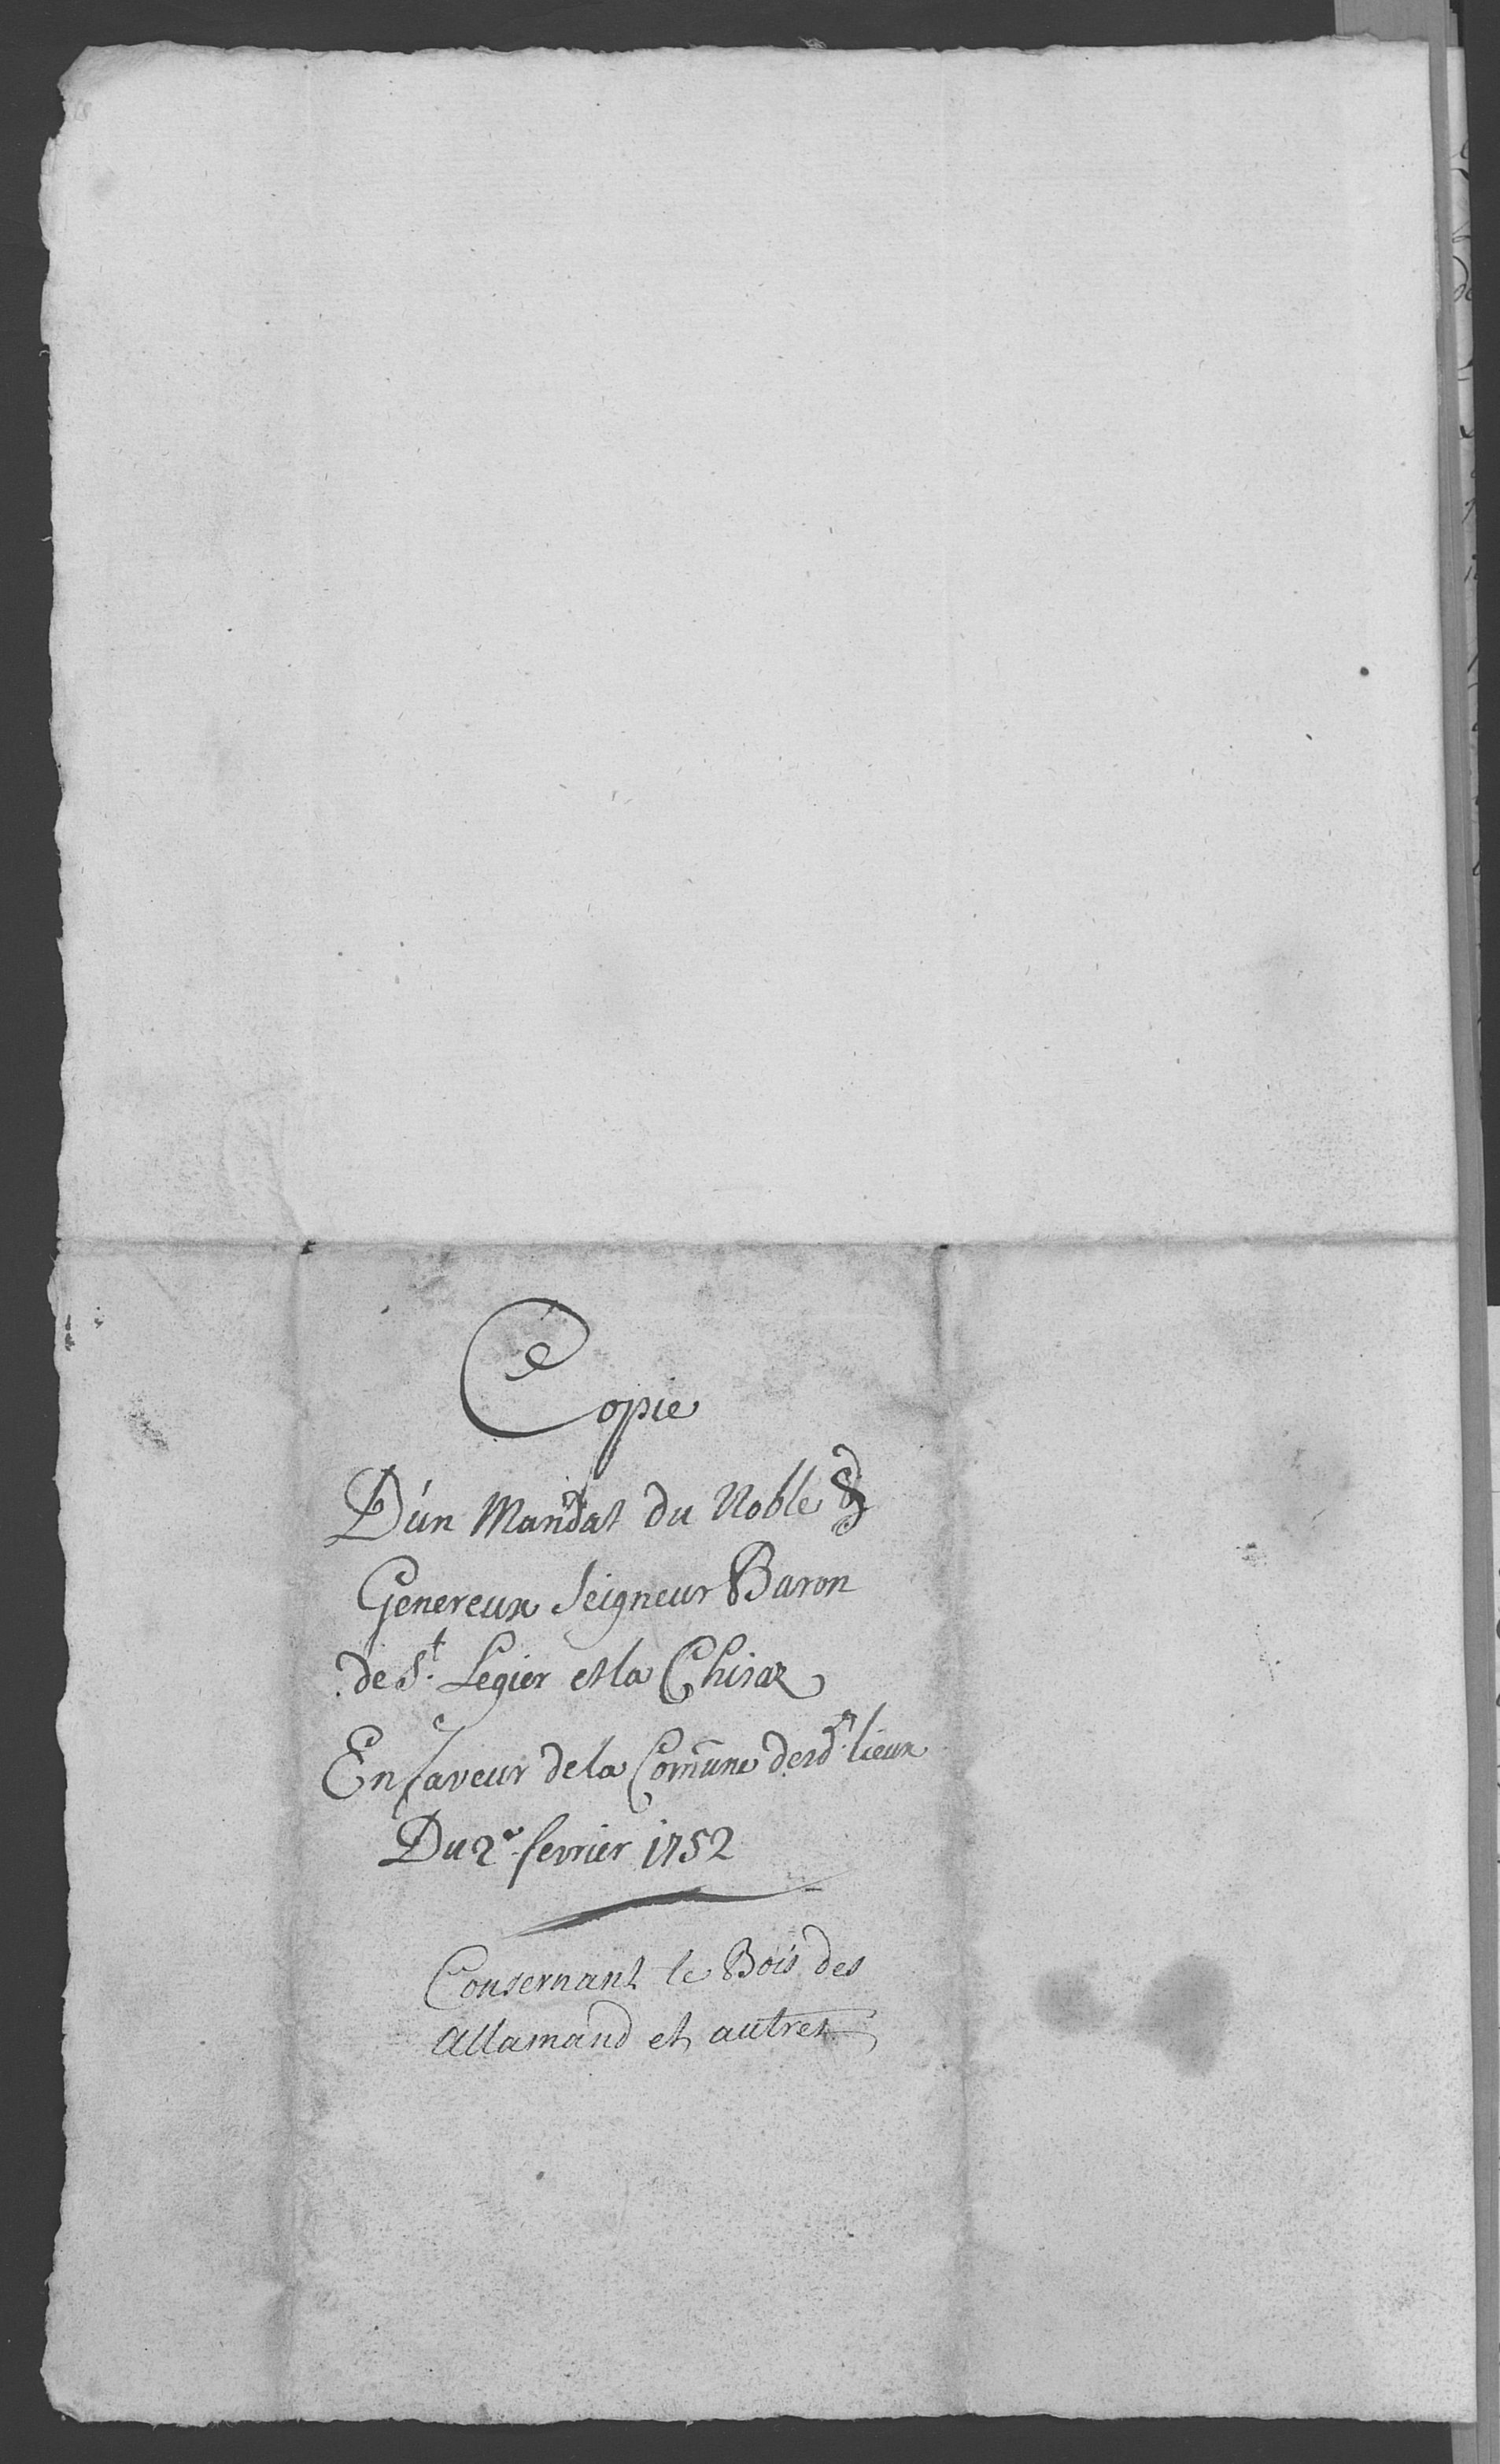 Copie
D'un Mandat du Noble &
Genereux Seigneur Baron
de St. Legier et la Chisaz
En faveur de la Comune desd.ts lieux
Du 2e. fevrier 1752
Consernant le Bois des
allamand et autres